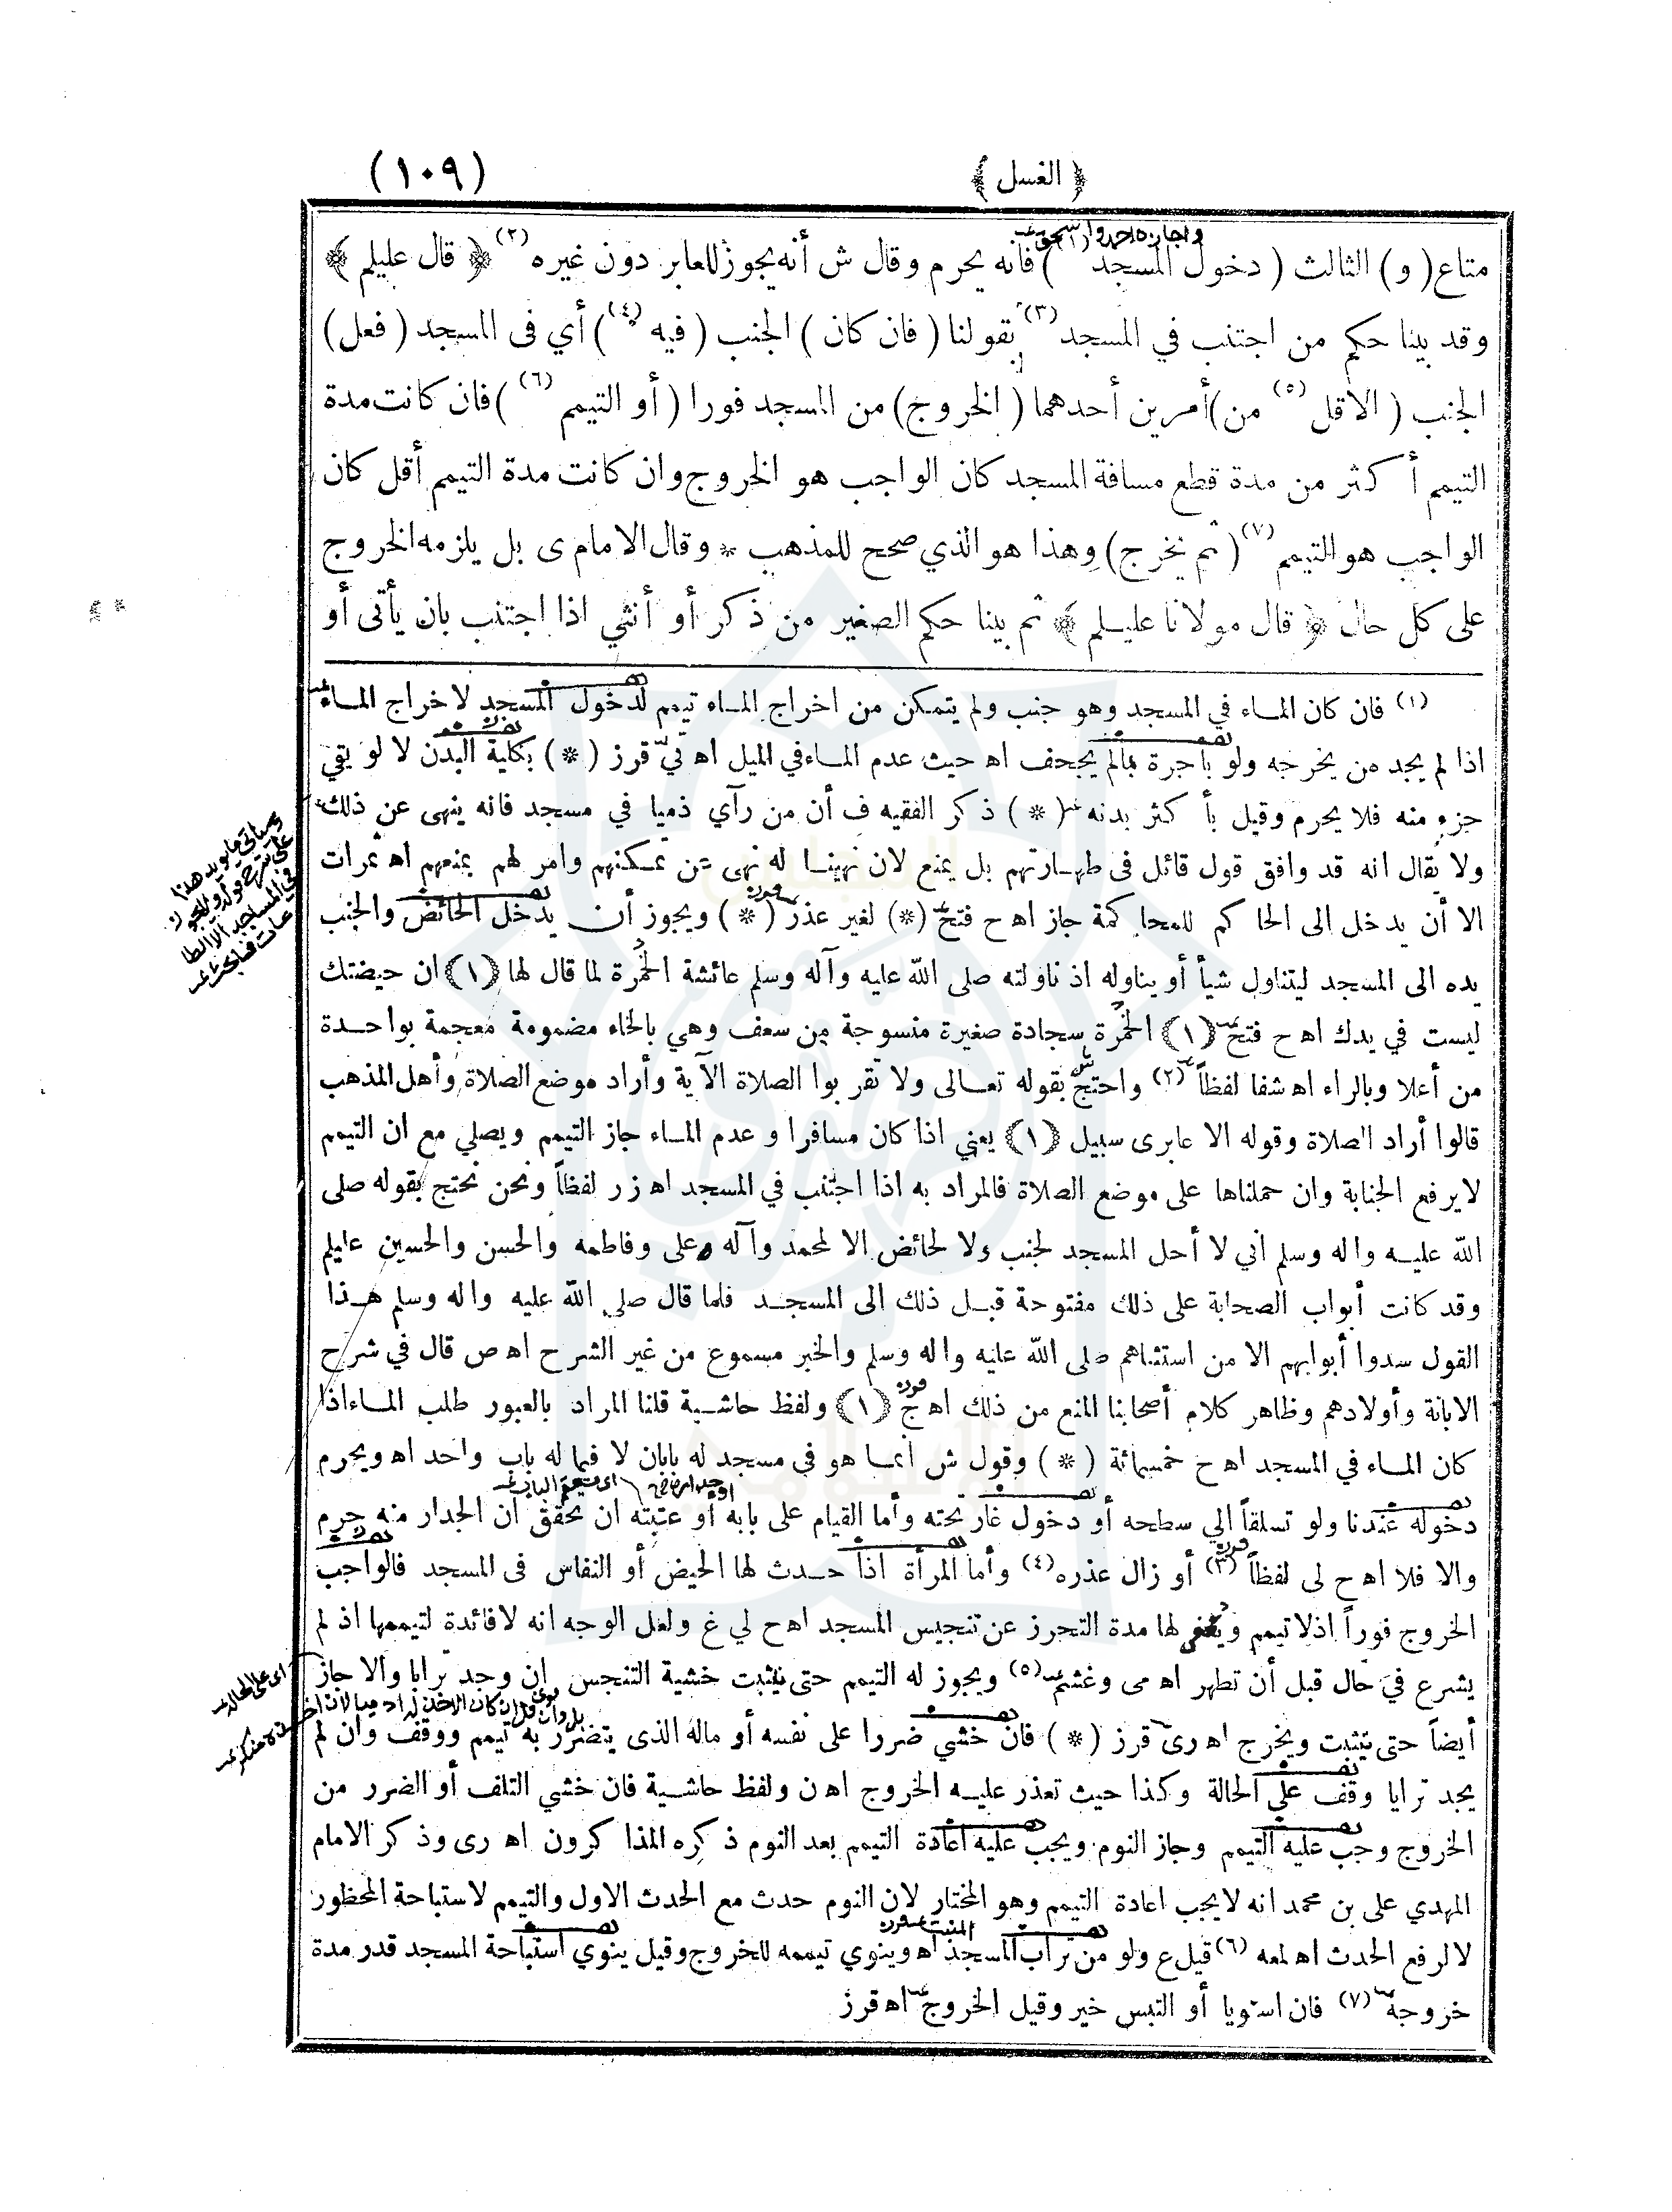 ﴿ الغسل ﴾
(١٠٩)
متاع (و) الثالث (دخول المسجد (١) ) فانه يحرم وقال ش أنه يجوز للعابر دون غيره (٢) ﴿ قال عليلم ﴾
وقد بينا حكم من اجتنب في المسجد (٣) بقولنا (فان كان) الجنب (فيه (٤) ) أي فى المسجد (فعل)
الجنب (الاقل (٥) من) أمرين أحدهما (الخروج) من المسجد فورا (أو التيمم (٦) ) فان كانت مدة
التيمم أكثر من مدة قطع مسافة المسجد كان الواجب هو الخروج وان كانت مدة التيمم أقل كان
الواجب هو التيمم (٧) (ثم يخرج) وهذا هو الذي صحح للمذهب * وقال الامام ى بل يلزمه الخروج
على كل حال ﴿ قال مولانا عليلم ﴾ ثم بينا حكم الصغير من ذكر أو أنثي اذا اجتنب بان يأتى أو
(١) فان كان الماء في المسجد وهو جنب ولم يتمكن من اخراج الماء تيمم لدخول المسجد لاخراج الماء
اذا لم يجد من يخرجه ولو باجرة بمالم يجحف اه حيث عدم الماء في الميل اه تي قرز (*) بكلية البدن لا لو بقي
جزء منه فلا يحرم وقيل بأكثر بدنه (*) ذكر الفقيه ف أن من رآي ذميا في مسجد فانه ينهى عن ذلك
ولا يقال انه قد وافق قول قائل فى طهارتهم بل يمنع لان نهينا له نهى عن تمكنهم وامر لهم بمنعهم اه ثمرات
الا أن يدخل الى الحاكم للمحاكمة جاز اه ح فتح (*) لغير عذر (*) ويجوز أن يدخل الحائض والجنب
يده الى المسجد ليتناول شيأ أو يناوله اذ ناولته صلى الله عليه وآله وسلم عائشة الخمرة لما قال لها ﴿١﴾ ان حيضتك
ليست في يدك اه ح فتح ﴿١﴾ الخمرة سجادة صغيرة منسوجة من سعف وهي بالخاء مضمومة معجمة بواحدة
من أعلا وبالراء اه شفا لفظاً (٢) واحتج بقوله تعالى ولا تقربوا الصلاة الآية وأراد موضع الصلاة وأهل المذهب
قالوا أراد الصلاة وقوله الا عابرى سبيل ﴿١﴾ يعني اذا كان مسافرا وعدم الماء جاز التيمم ويصلي مع ان التيمم
لايرفع الجنابة وان حملناها على موضع الصلاة فالمراد به اذا اجتنب في المسجد اه زر لفظاً ونحن نحتج بقوله صلى
الله عليه واله وسلم اني لا أحل المسجد لجنب ولا لحائض الا لمحمد وآله وعلى وفاطمه والحسن والحسين عليلم
وقد كانت أبواب الصحابة على ذلك مفتوحة قبل ذلك الى المسجد فلما قال صلى الله عليه واله وسلم هذا
القول سدوا أبوابهم الا من استثناهم صلى الله عليه واله وسلم والخبر مسموع من غير الشرح اه ص قال في شرح
الابانة وأولادهم وظاهر كلام أصحابنا المنع من ذلك اه ج ﴿١﴾ ولفظ حاشية قلنا المراد بالعبور طلب الماء اذا
كان الماء في المسجد اه ح خمسمائة (*) وقول ش انما هو في مسجد له بابان لا فيما له باب واحد اه ويحرم
دخوله عندنا ولو تسلقاً الي سطحه أو دخول غار تحته وأما القيام على بابه أو عتبته ان تحقق ان الجدار منه حرم
والا فلا اه ح لى لفظاً (٣) أو زال عذره (٤) وأما المرأة اذا حدث لها الحيض أو النفاس فى المسجد فالواجب
الخروج فوراً اذلا تيمم ويعفى لها مدة التحرز عن تنجيس المسجد اه ح لي غ ولعل الوجه انه لا فائدة لتيممها اذ لم
يشرع في حال قبل أن تطهر اه مى وغشم (٥) ويجوز له التيمم حتى يتثبت خشية التنجس ان وجد ترابا والا جاز
أيضاً حتى يتثبت ويخرج اه رى قرز (*) فان خشي ضررا على نفسه أو ماله الذى يتضرر به تيمم ووقف وان لم
يجد ترابا وقف على الحالة وكذا حيث تعذر عليه الخروج اه ن ولفظ حاشية فان خشي التلف أو الضرر من
الخروج وجب عليه التيمم وجاز النوم ويجب عليه اعادة التيمم بعد النوم ذكره المذاكرون اه رى وذكر الامام
المهدي على بن محمد انه لايجب اعادة التيمم وهو المختار لان النوم حدث مع الحدث الاول والتيمم لاستباحة المحظور
لا لرفع الحدث اه لمعه (٦) قيل ع ولو من تراب المسجد اه وينوي تيممه للخروج وقيل ينوي استباحة المسجد قدر مدة
خروجه (٧) فان استويا أو التبس خير وقيل الخروج اه قرز